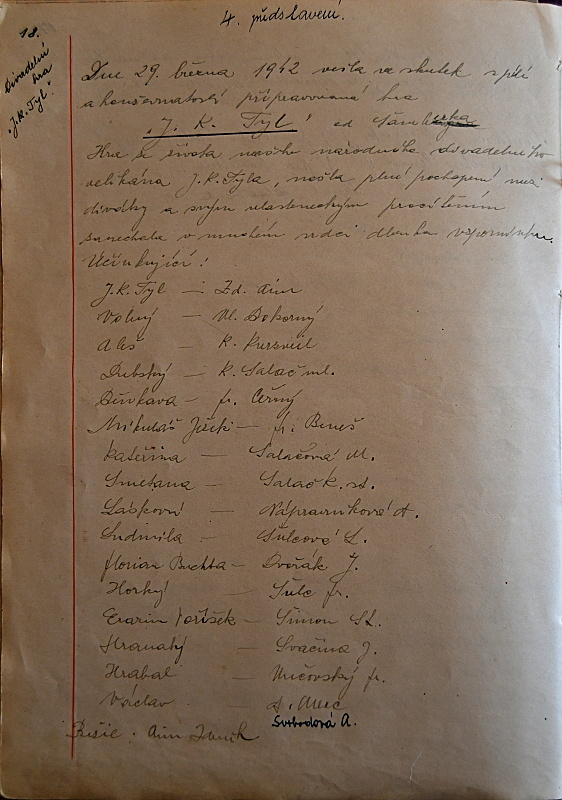 4. představení.
18.
Divadelní
hra
"J.K. Tyl".
Dne 29. března 1942 vešla ve skutek s pílí
a houževnatostí připravovaná hra
"J. K. Tyl" od
Hra ze života našeho národního divadelního
velikána J.K. Tyla, našla plné pochopení mezi
diváky a svým vlasteneckým procítěním
zanechala v mnohém srdci dlouhou vzpomínku.
Účinkující:
J.K. Tyl — Zd.
Volný — Vl. Pokorný
Aleš — K. Kurzveil
Dubský — K. Salač ml.
— fr. Černý
Mikuláš — fr. Beneš
Kateřina — Salačová M.
Smetana — Salač K. st.
Lásková — Nápravníková A.
Ludmila — Šulcová L.
Florian Buchta — Dvořák J.
Horký — Šulc fr.
— Šimon St.
Hranatý — Svačina J.
Hrabal — fr.
Václav
Svobodová A.
Režie.